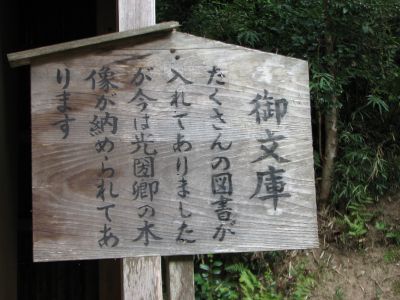 御文庫
たくさんの図書が
入れてありました
が今は光圀卿の木
像が納められてあ
ります